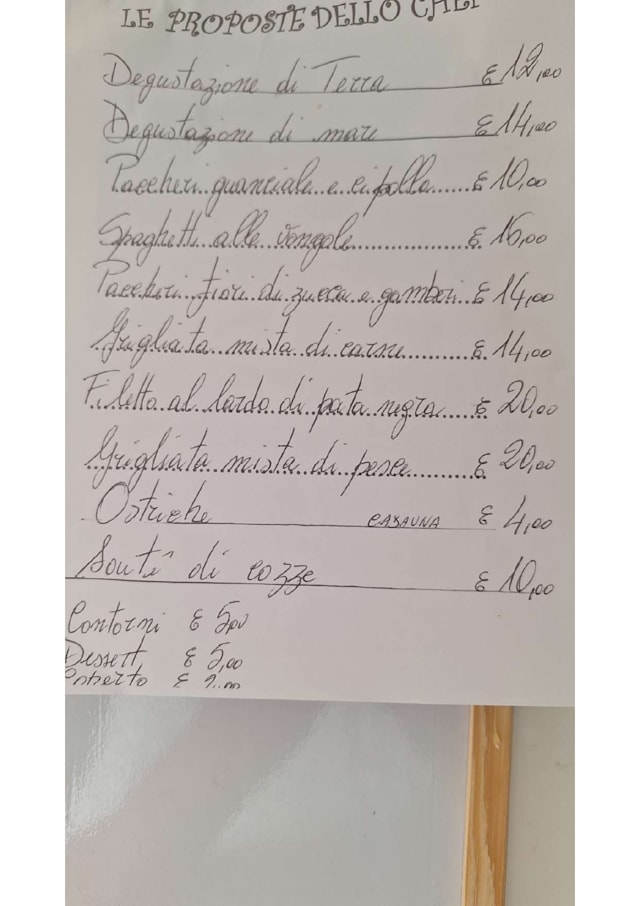 LE PROPOSTE DELLO CHEF
Degustazione di Terra € 12,00
Degustazione di mare € 14,00
Paccheri guanciale e cipolla......€ 10,00
Spaghetti alle vongole................€ 16,00
Paccheri fiori di zucca e gamberi..€ 14,00
Grigliata mista di carne..........€ 14,00
Filetto al lardo di pata negra....€ 20,00
Grigliata mista di pesce...........€ 20,00
Ostriche CADAUNA € 4,00
Souté di cozze € 10,00
Contorni € 5,00
Dessert € 5,00
Coperto €